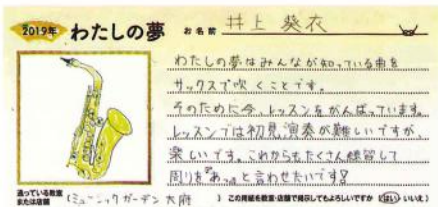 2019年 わたしの夢 お名前 井上 葵衣
わたしの夢はみんなが知っている曲を
サックスで吹くことです。
そのために今、レッスンをがんばっています。
レッスンでは初見演奏が難しいですが、
楽しいです。これからもたくさん練習して
周りを"あっ"と言わせたいです!
通っている教室
または店舗 (ミュージックガーデン大府 ) この用紙を教室・店舗で掲示してもよろしいですか (はい いいえ)